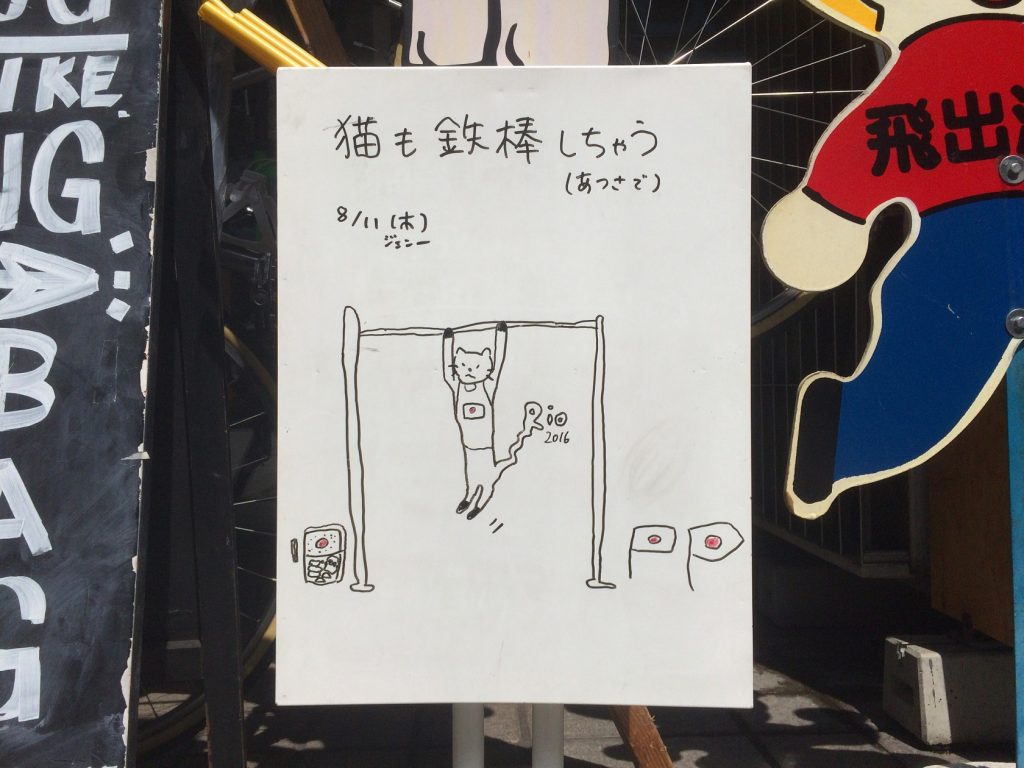 猫も鉄棒しちゃう
(あつさで)
8/11(木)
ジェニー
Rio
2016
飛出
IKE
NG
BAG